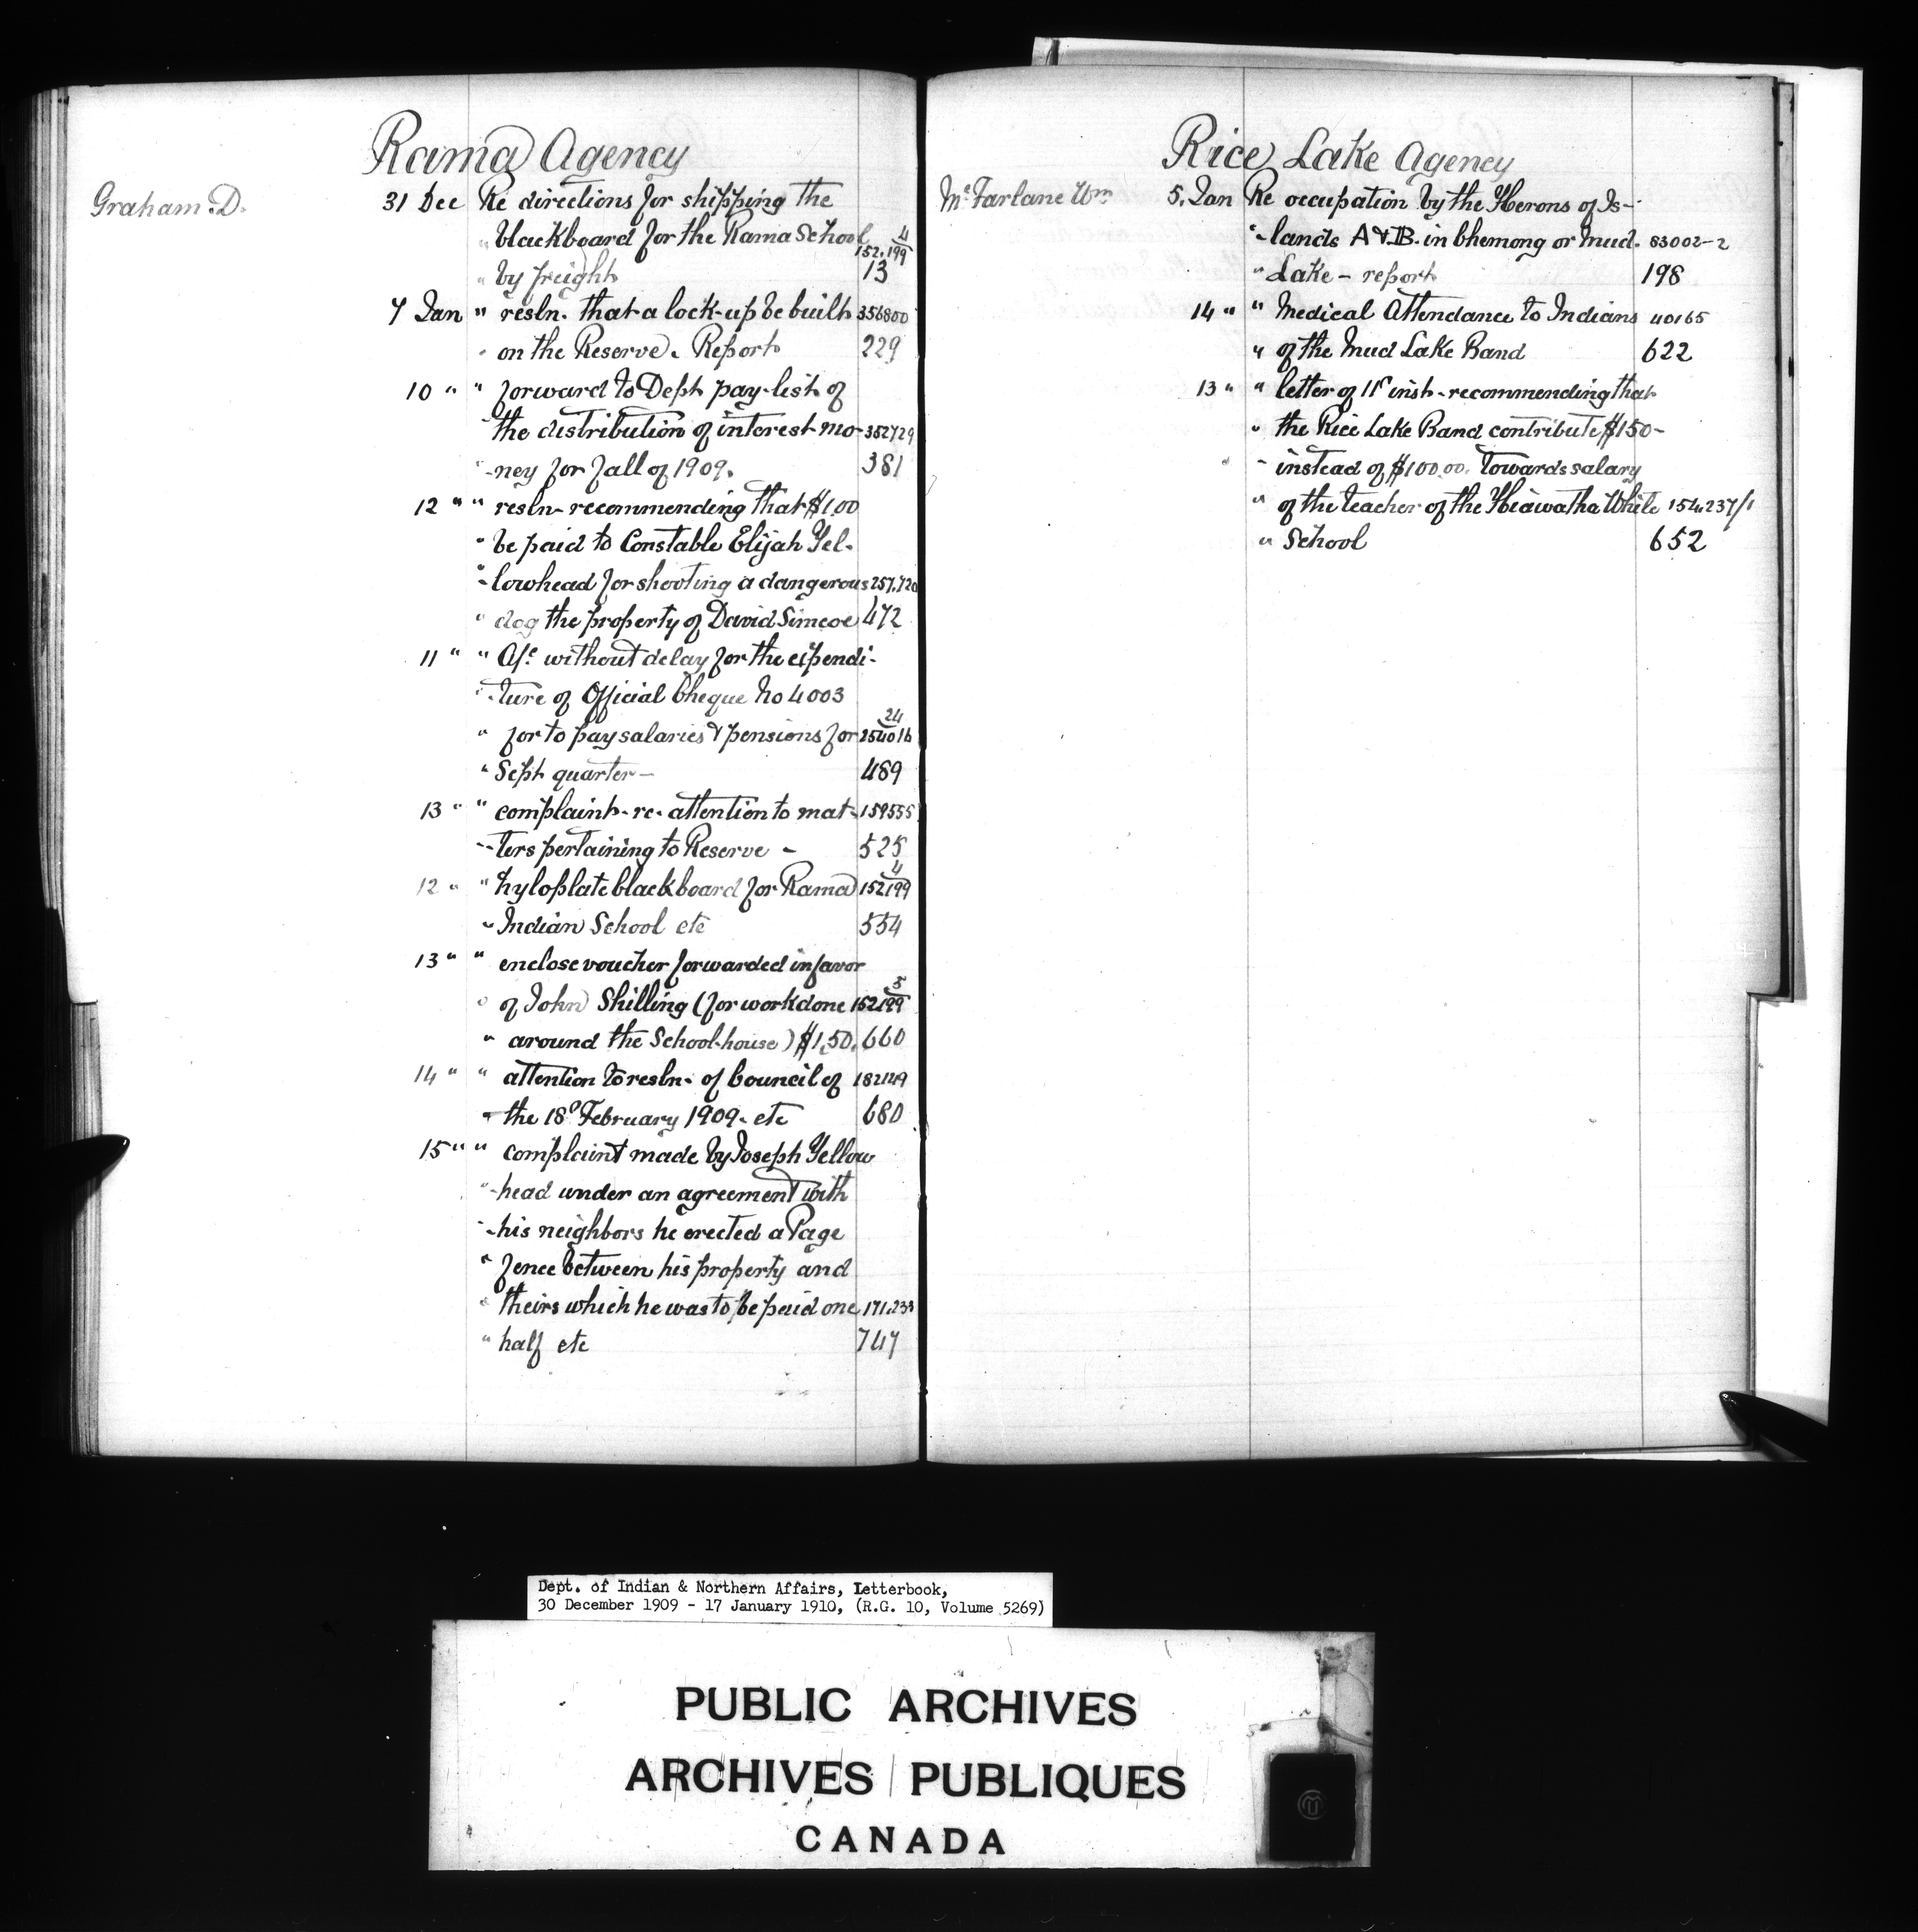 Rama Agency
Graham. D. 31 Dec Re directions for shipping the
" blackboard for the Rama School 4 152,199
" by freight 13
7 Jan " resln. that a lock-up be built 356800
" on the Reserve. Report 229
10 " " forward to Dept pay-list of
" the distribution of interest mo- 352729
" -ney for fall of 1909. 381
12 " " resln- recommending that $1.00
" be paid to Constable Elijah Yel-
" -lowhead for shooting a dangerous 257,720
" dog the property of David Simcoe 472
11 " " A/c without delay for the expendi-
" -ture of Official Cheque No 4003
" for to pay salaries & pensions for 24 254016
" Sept quarter- 489
13 " " complaint- re- attention to mat- 159555
" -ters pertaining to Reserve - 525
12 " " hyloplate blackboard for Rama 4 152199
" Indian School etc 554
13 " " enclose voucher forwarded in favor
" of John Shilling (for work done 5 152199
" around the School-house) $1.50. 660
14 " " attention to resln- of Council of 182149
" the 18º February 1909- etc 680
15 " " complaint made by Joseph Yellow
" -head under an agreement with
" -his neighbors he erected a Page
" fence between his property and
" theirs which he was to be paid one 171,233
" half etc 747
Rice Lake Agency
McFarlane Wm 5. Jan Re occupation by the Herons of Is-
" -lands A & B. in Chemong or Mud. 83002-2
" Lake - report 198
14 " " Medical Attendance to Indians 40165
" of the Mud Lake Band 622
13 " " letter of 11º inst- recommending that
" the Rice Lake Band contribute $150-
" - instead of $100.00. towards salary
" of the teacher of the Hiawatha White 154,237/1
" School 652
Dept. of Indian & Northern Affairs, Letterbook,
30 December 1909 - 17 January 1910, (R.G. 10, Volume 5269)
PUBLIC ARCHIVES
ARCHIVES PUBLIQUES
CANADA